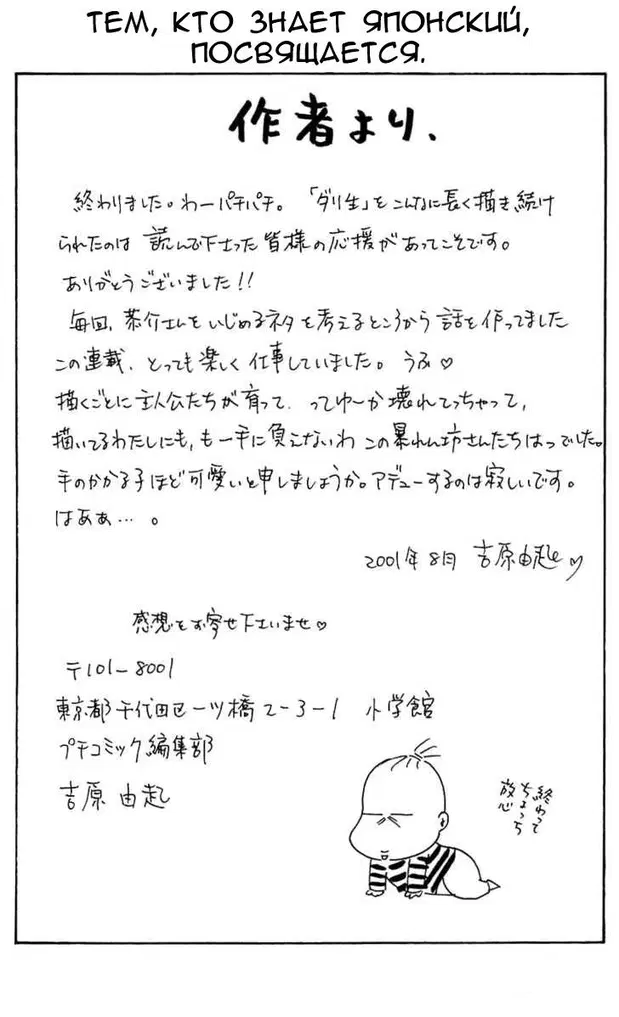 ТЕМ, КТО ЗНАЕТ ЯПОНСКИЙ,
ПОСВЯЩАЕТСЯ.
作者より、
終わりました。わーパチパチ。「ダリ生」をこんなに長く描き続け
られたのは 読んで下さった皆様の応援があってこそです。
ありがとうございました!!
毎回、恭介さんをいじめるネタを考えるところから話を作ってました
この連載、とっても楽しく仕事していました。うふ♡
描くごとに主人公たちが育って、ってゆーか壊れてっちゃって、
描いてるわたしにも、も一手に負えないわ この暴れん坊さんたちはっでした。
手のかかる子ほど可愛いと申しましょうか。アデューするのは寂しいです。
はぁぁ…。
2001年8月 吉原由起♡
感想をお寄せ下さいませ♡
〒101-8001
東京都千代田区一ツ橋2-3-1 小学館
プチコミック編集部
吉原 由起
終わって
ちょっち
放心